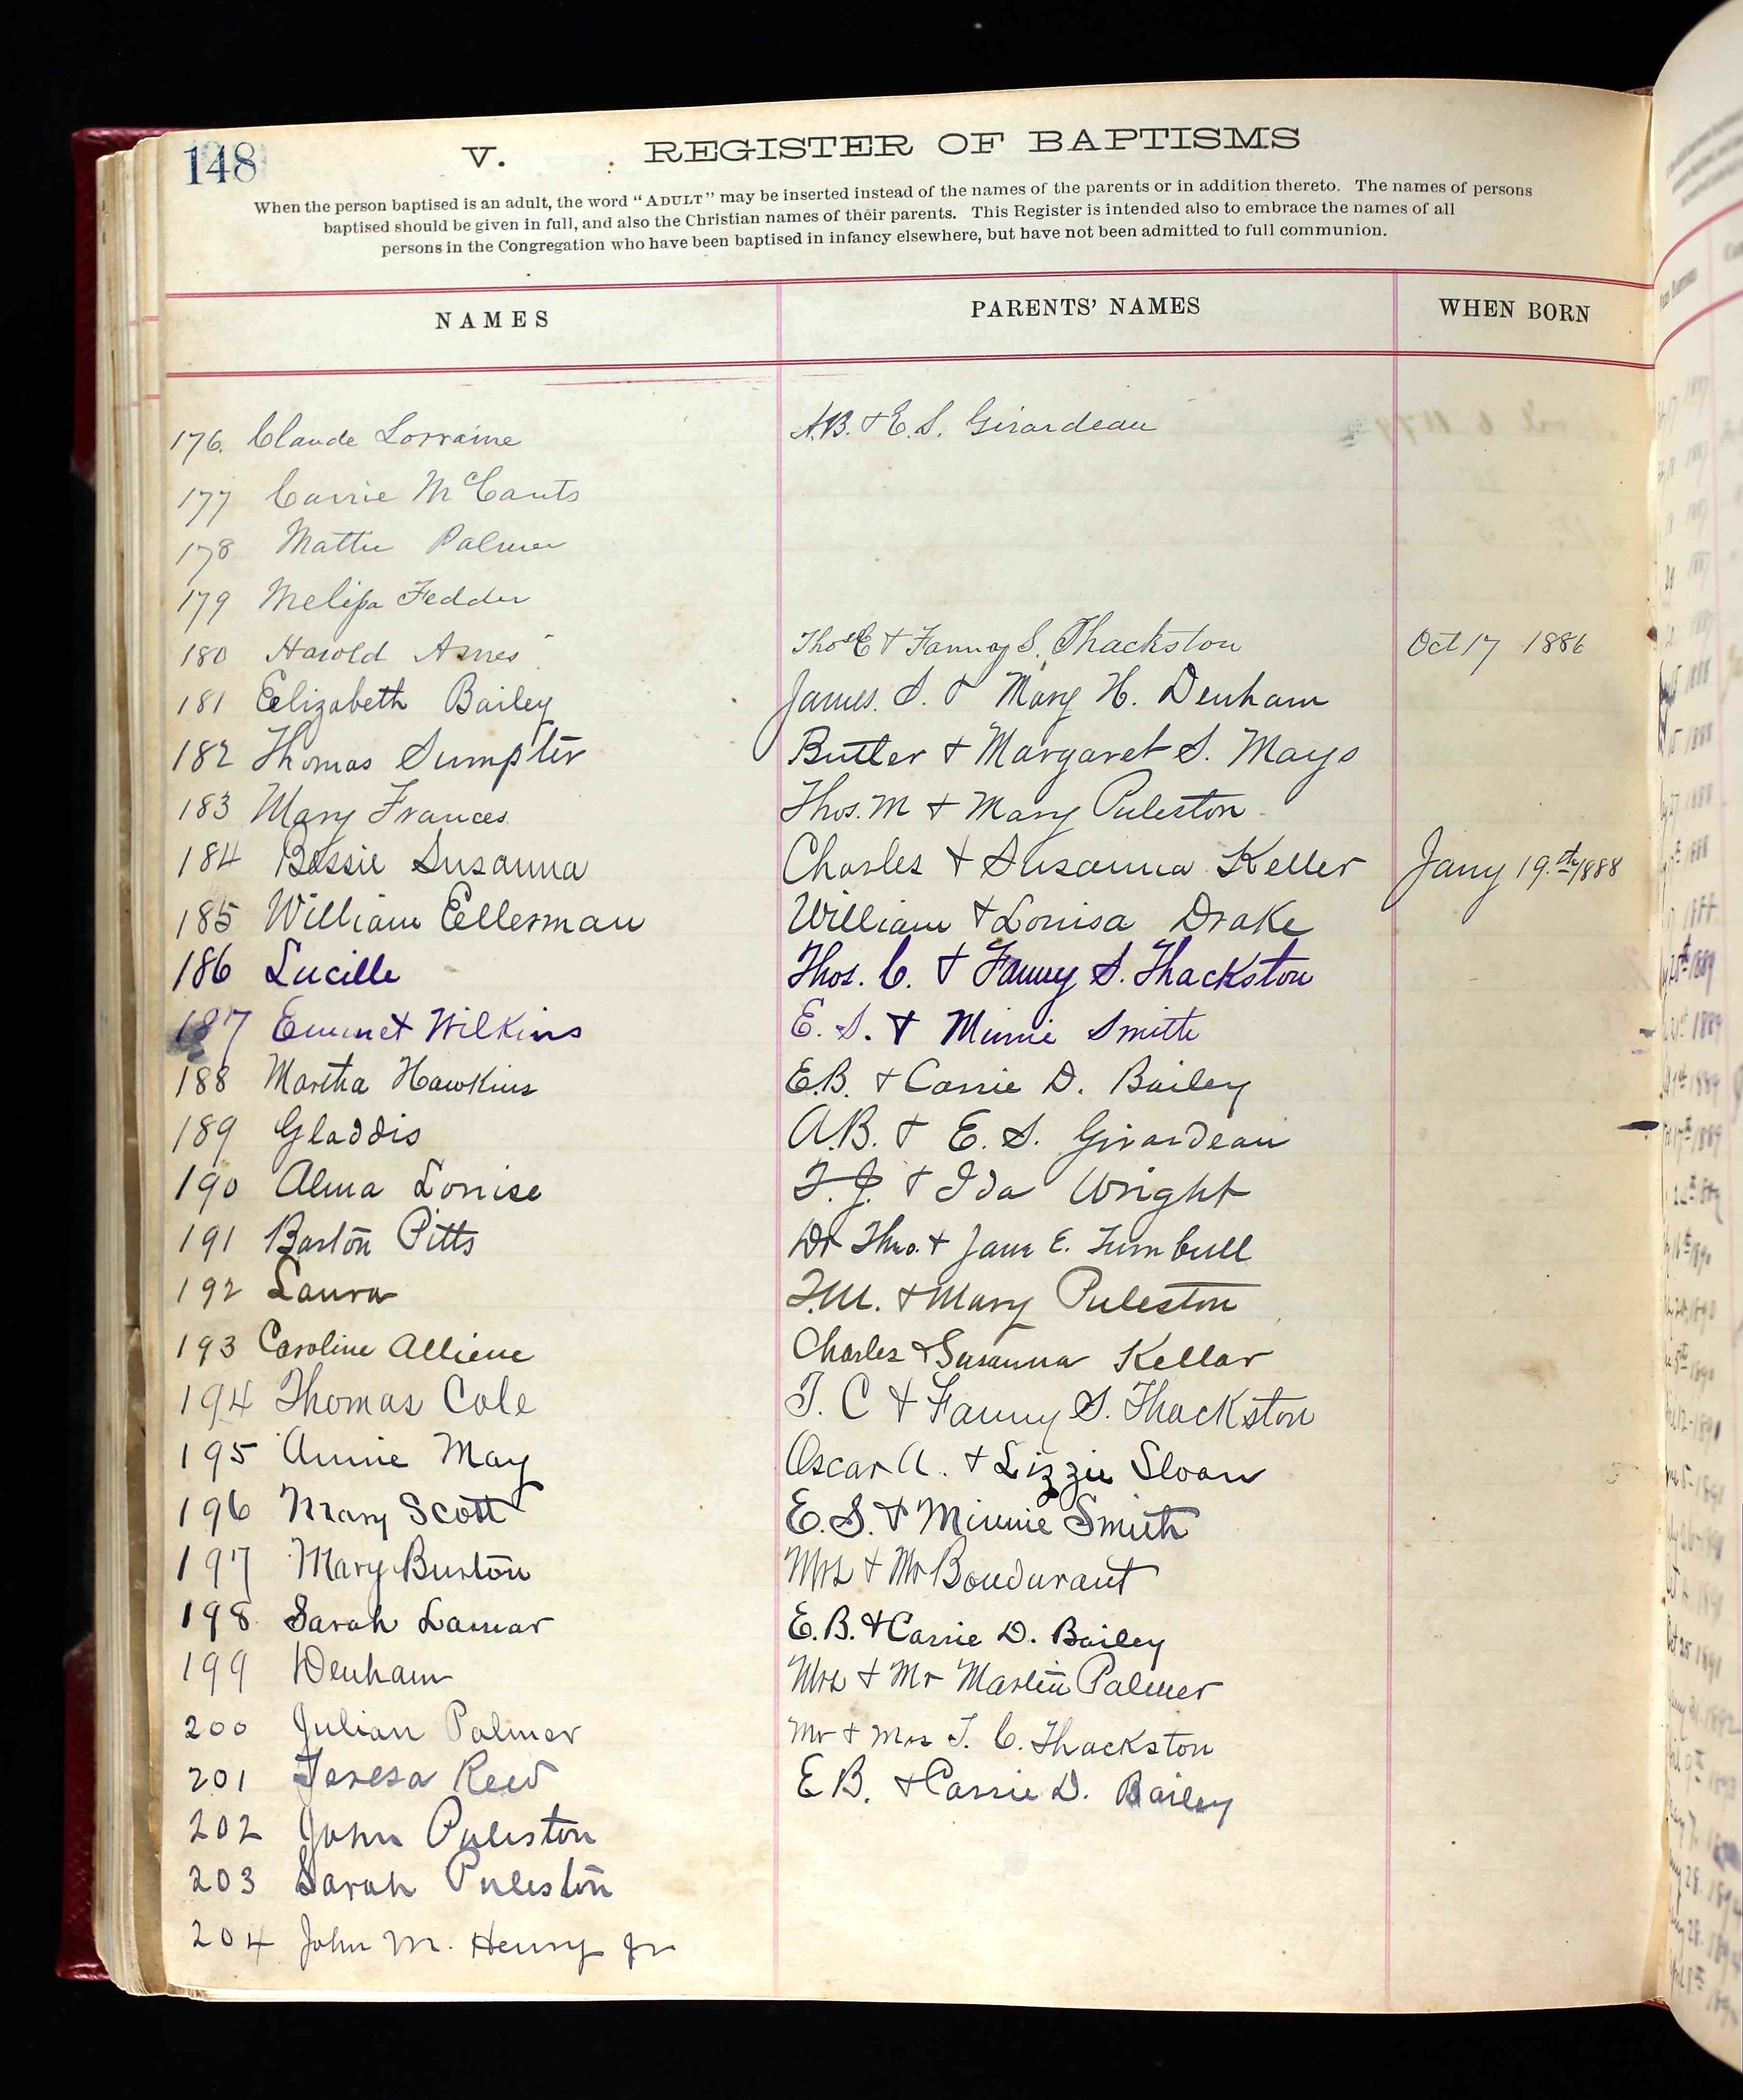 148 V. REGISTER OF BAPTISMS
When the person baptised is an adult, the word "ADULT" may be inserted instead of the names of the parents or in addition thereto. The names of persons
baptised should be given in full, and also the Christian names of their parents. This Register is intended also to embrace the names of all
persons in the Congregation who have been baptised in infancy elsewhere, but have not been admitted to full communion.
NAMES PARENTS' NAMES WHEN BORN
176. Claude Lorraine A.B. + E.S. Girardeau
177 Carrie McCants
178 Mattie Palmer
179 Melissa Fedder
180 Harold Thos E + Fanny S. Thackston Oct 17 1886
181 Elizabeth Bailey James. S. + Mary H. Denham
182 Thomas Sumpter Butler + Margaret S. Mays
183 Mary Frances Thos. M + Mary Puleston
184 Bessie Susanna Charles + Susanna Keller Jany 19.th/1888
185 William Ellerman William + Louisa Drake
186 Lucille Thos. C. + Fanny S. Thackston
187 Emmet Wilkins E. S. + Minnie Smith
188 Martha Hawkins E.B. + Carrie D. Bailey
189 Gladdis A.B. + E. S. Girardeau
190 Alma Louise T. J. + Ida Wright
191 Barton Pitts Dr Theo. + Jane E. Turnbull
192 Laura T.M. + Mary Puleston
193 Caroline Alliene Charles + Susanna Kellar
194 Thomas Cole T. C + Fanny S. Thackston
195 Annie May Oscar A. + Lizzie Sloan
196 Mary Scott E. S. + Minnie Smith
197 Mary Burton Mrs + Mr Boudurant
198 Sarah Lamar E. B. + Carrie D. Bailey
199 Denham Mrs + Mr Martin Palmer
200 Julian Palmer Mr + Mrs T. C. Thackston
201 Teresa Reed E B. + Carrie D. Bailey
202 John Puleston
203 Sarah Puleston
204 John M. Henry Jr